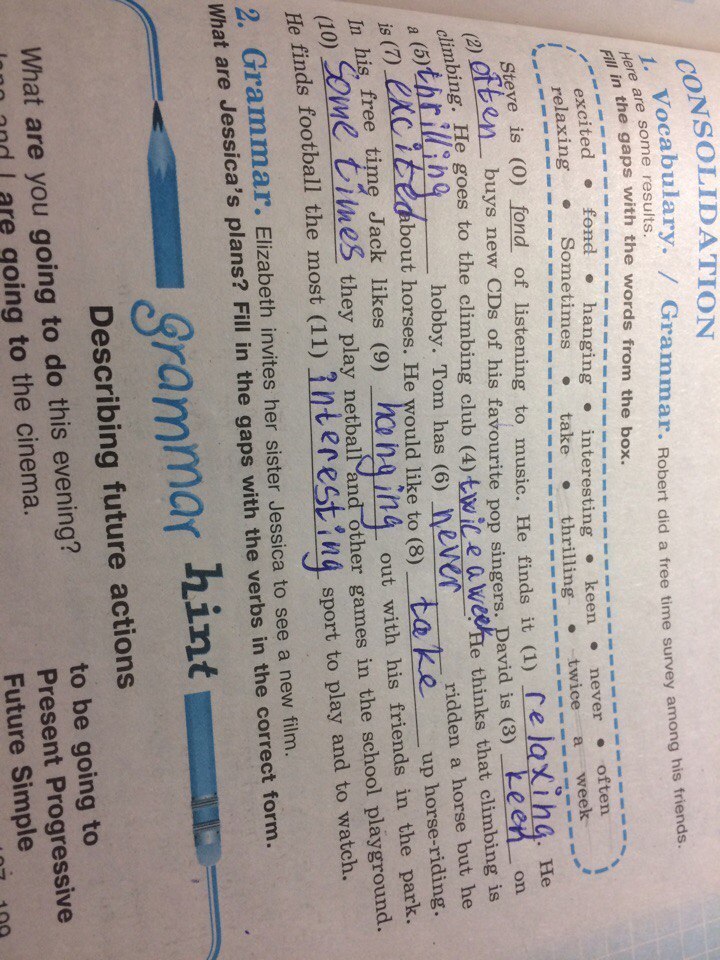 CONSOLIDATION
1. Vocabulary. / Grammar. Robert did a free time survey among his friends.
Here are some results.
Fill in the gaps with the words from the box.
excited • fond • hanging • interesting • keen • never • often
relaxing • Sometimes • take • thrilling • twice a week
Steve is (0) fond of listening to music. He finds it (1) relaxing. He
(2) often buys new CDs of his favourite pop singers. David is (3) keen on
climbing. He goes to the climbing club (4) twice a week. He thinks that climbing is
a (5) thrilling hobby. Tom has (6) never ridden a horse but he
is (7) excited about horses. He would like to (8) take up horse-riding.
In his free time Jack likes (9) hanging out with his friends in the park.
(10) Some times they play netball and other games in the school playground.
He finds football the most (11) interesting sport to play and to watch.
2. Grammar. Elizabeth invites her sister Jessica to see a new film.
What are Jessica's plans? Fill in the gaps with the verbs in the correct form.
grammar hint
Describing future actions
What are you going to do this evening?
and I are going to the cinema.
to be going to
Present Progressive
Future Simple